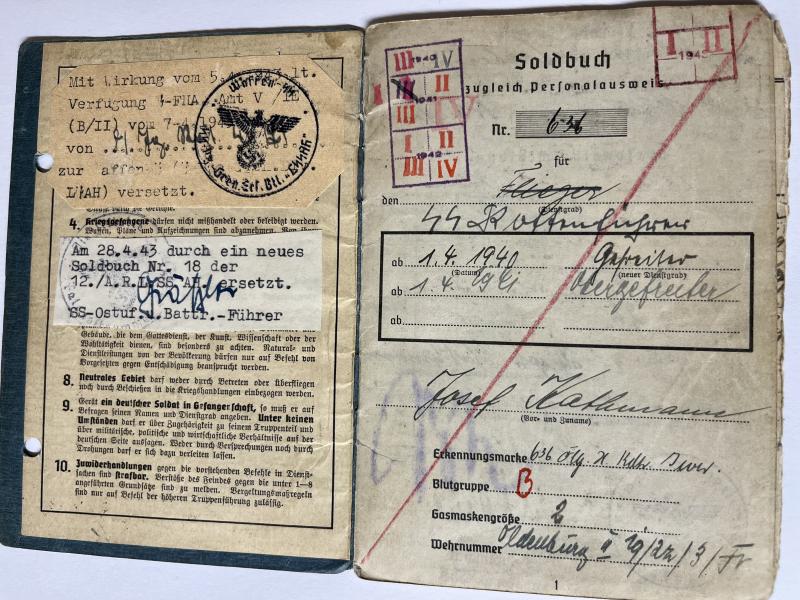 Mit Wirkung vom 5.4. lt.
Verfügung ϟϟ-FHA Amt V /IE
(B/II) vom 7.4.
von
zur
LϟϟAH) versetzt.
Waffen-ϟϟ
4. Kriegsgefangene dürfen nicht mißhandelt oder beleidigt werden.
Waffen, Pläne und Aufzeichnungen sind abzunehmen. Von
Am 28.4.43 durch ein neues
Soldbuch Nr. 18 der
12./A.R.LϟϟAH ersetzt.
SS-Ostuf.u.Battr.-Führer
Gebäude, die dem Gottesdienst, der Kunst, Wissenschaft oder der
Wohltätigkeit dienen, sind besonders zu achten. Natural- und
Dienstleistungen von der Bevölkerung dürfen nur auf Befehl von
Vorgesetzten gegen Entschädigung beansprucht werden.
8. Neutrales Gebiet darf weder durch Betreten oder Überfliegen
noch durch Beschießen in die Kriegshandlungen einbezogen werden.
9. Gerät ein deutscher Soldat in Gefangenschaft, so muß er auf
Befragen seinen Namen und Dienstgrad angeben. Unter keinen
Umständen darf er über Zugehörigkeit zu seinem Truppenteil und
über militärische, politische und wirtschaftliche Verhältnisse auf der
deutschen Seite aussagen. Weder durch Versprechungen noch durch
Drohungen darf er sich dazu verleiten lassen.
10. Zuwiderhandlungen gegen die vorstehenden Befehle in Dienst-
sachen sind strafbar. Verstöße des Feindes gegen die unter 1—8
angeführten Grundsätze sind zu melden. Vergeltungsmaßregeln
sind nur auf Befehl der höheren Truppenführung zulässig.
III 1940 IV
I III 1941 II
III IV
I 1942 II
III IV
I 1943 II
Soldbuch
zugleich Personalausweis
Nr. 636
für
den Flieger
(Dienstgrad)
ϟϟ Rottenführer
ab 1.4.1940 Gefreiter
(Datum) (neuer Dienstgrad)
ab 1.4.1941 Obergefreiter
ab
Josef
(Vor- und Zuname)
Erkennungsmarke 636
Blutgruppe B
Gasmaskengröße 2
Wehrnummer Oldenburg II 19/22/3/
1